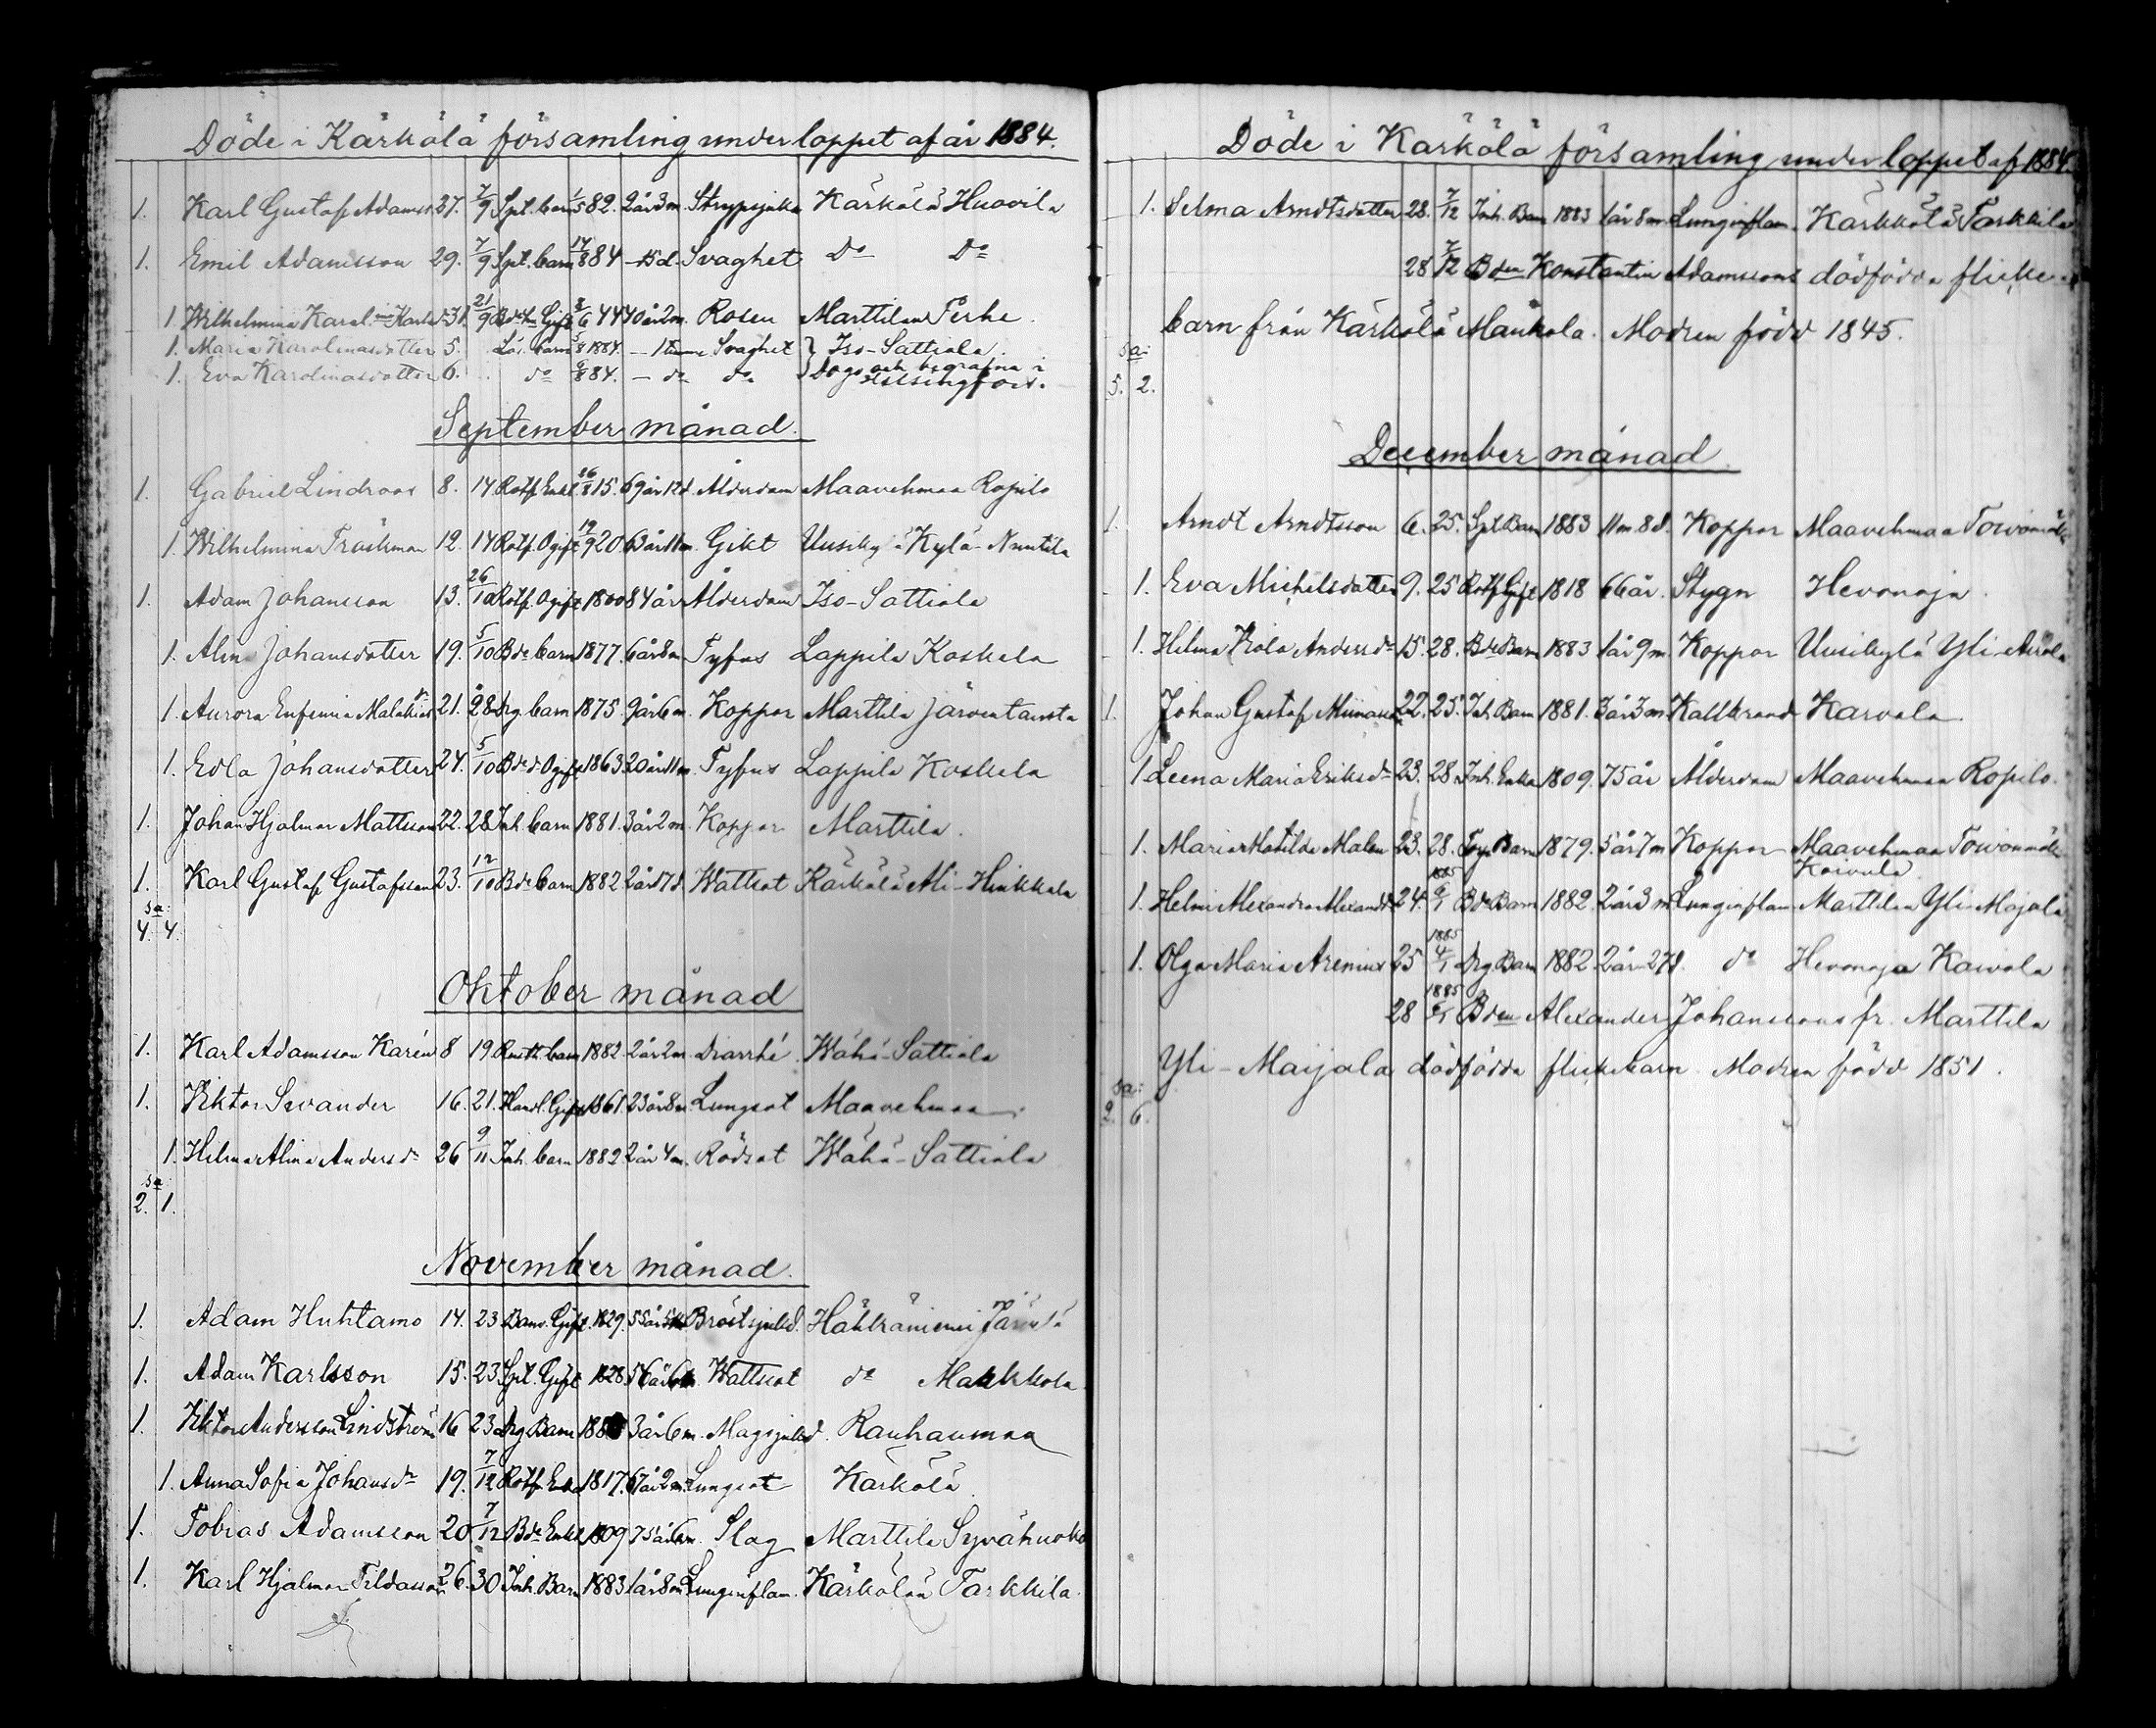 Döde i Kärkölä församling under loppet af år 1884.
1. Karl Gustaf Adamss. 27. 7/9 Spt. barn 1/5 82. 2 år 3 m. Strypsjuka Kärkölä Huovila
1. Emil Adamsson 29. 7/9 Spt. barn 14/8 84 - 15 d. Svaghet Do Do
1. Wilhelmina Karol. Karlsdr 31. 21/9 Gift 2/6 44 40 år 2 m. Rosen Marttila Perhe.
1. Maria Karolinasdotter 5. Lös. barn 5/8 1884. - 1 timme Svaghet } Iso-Sattiala.
1. Eva Karolinasdotter 6. do 6/8 84. - do do } och begrafna i
Helsingfors.
September månad.
1. Gabriel Lindroos 8. 14 Rotf. Enkl. 26/8 15. 69 år 12 d. Ålderdom Maavehmaa Ropilo
1. Wilhelmina Träskman 12. 14 Rotf. Ogift 19/9 20. 63 år 11 m. Gikt Uusikylä Kylä-Nuutila
1. Adam Johansson 13. 26/10 Rotf. Ogift 1800 84 år Ålderdom Iso-Sattiala
1. Alma Johansdotter 19. 5/10 Bde barn 1877. 6 år 8 m Tyfus Lappila Koskela
1. Aurora Eufemia Malakiasdr 21. 28 Drg. barn 1875. 9 år 6 m. Koppor Marttila Järventausta
1. Edla Johansdotter 24. 5/10 Bde d. Ogift 1863 20 år 11 m. Tyfus Lappila Koskela
1. Johan Hjalmar Mattsson 22. 28 Inh. barn 1881. 3 år 2 m. Koppor Marttila.
1. Karl Gustaf Gustafsson 23. 12/10 Bde barn 1882 2 år 17 d. Wattsot Kärkölä Ali-Hinkkala
sa:
4. 4.
Oktober månad
1. Karl Adamsson Karén 8 19. Rustk. barn 1882. 2 år 2 m. Diarrhé Wähä-Sattiala
1. Viktor Sevander 16. 21. Handl. Gift 1861. 23 år 8 m. Lungsot Maavehmaa.
1. Helma Alina Andersdr 26 9/11 Inh. barn 1882 2 år 4 m. Rödsot Wähä-Sattiala
sa:
2. 1.
November månad.
1. Adam Huhtamo 14. 23 Gift. 1829. 55 år Bröstsjukd. Hähkäniemi Järvelä
1. Adam Karlsson 15. 23 Spt. Gift 1828. 56 år 6 m Wattsot do Makkola
1. Viktor Andersson Lindström 16 23 Drg Barn 188 3 år 6 m. Magsjukd. Rauhanmaa
1. Anna Sofia Johansdr 19. 7/12 Rotf. Enka 1817. 67 år 2 m. Lungsot Kärkölä.
1. Tobias Adamsson 20. 7/12 Bde Enkl 1809 75 år 6 m. Slag Marttila Syvähuoko
1. Karl Hjalmar Fildasson 26. 30 Inh. Barn 1883 1 år 8 m Lunginflam. Kärkölä Tarkkila.
Döde i Kärkölä församling under loppet af 1884.
1. Selma Arndtsdotter 28. 7/12 Inh. Barn 1883 1 år 8 m Lunginflam. Kärkölä Tarkkila
28 7/12 Bden Konstantin Adamssons dödfödda flicke-
barn från Kärkölä Maukola. Modren född 1845.
sa:
5. 2.
December månad.
1. Arndt Arndtsson 6. 25. Spt. Barn 1883 11 m. 8 d. Koppor Maavehmaa Toivonmäki
1. Eva Michelsdotter 9. 25 Rotf. Gift 1818 66 år. Stygn Hevonoja.
1. Helma Viola Andersdr 15. 28. Bde Barn 1883 1 år 9 m. Koppor Uusikylä Yli-Airola
1. Johan Gustaf 22. 25. Inh. Barn 1881. 3 år 3 m. Kallbrand Karvala.
1 Leena Maria Eriksdr 23. 28. Inh. Enka 1809. 75 år Ålderdom Maavehmaa Ropilo.
1. Maria Matilda Malm 23. 28. Torp Barn 1879. 5 år 7 m Koppor Maavehmaa Toivonmäki
Koivula
1. Helmi Alexandra Alexandersdr 24. 1885 6/1 Bde Barn 1882. 2 år 3 m Lunginflam. Marttila Yli-Maijala
1. Olga Maria Arenius 25 1885 4/1 Drg Barn 1882. 2 år 27 d. do Hevonoja Kaivola
28 1885 6/1 Bden Alexander Johanssons fr. Marttila
Yli-Maijala dödfödda flickebarn. Modren född 1851.
sa:
2. 6.